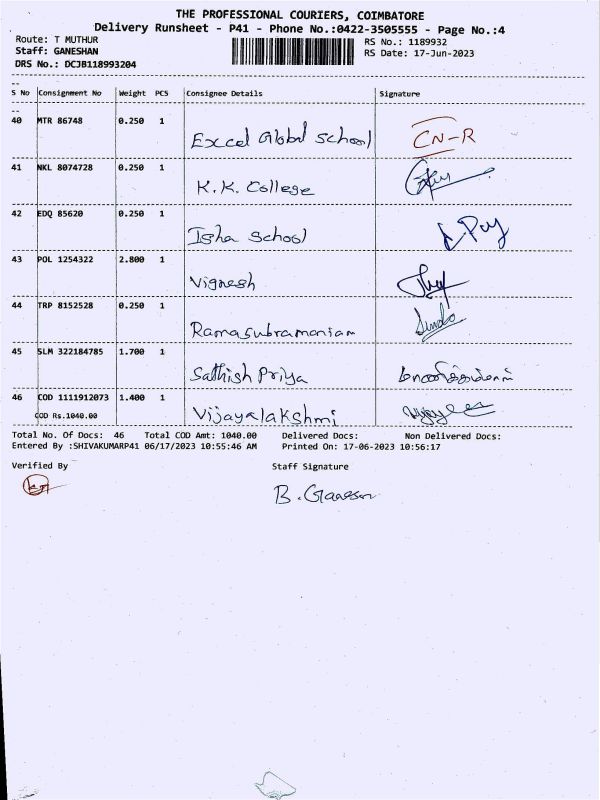 THE PROFESSIONAL COURIERS, COIMBATORE
Delivery Runsheet - P41 - Phone No.:0422-3505555 - Page No.:4
Route: T MUTHUR
RS No.: 1189932
Staff: GANESHAN
RS Date: 17-Jun-2023
DRS No.: DCJB118993204
S No Consignment No Weight PCS Consignee Details Signature
40 MTR 86748 0.250 1 Excel Global School CN-R
41 NKL 8074728 0.250 1 K.K. College
42 EDQ 85620 0.250 1 Isha School
43 POL 1254322 2.800 1 Vignesh
44 TRP 8152528 0.250 1 Ramasubramaniam
45 SLM 322184785 1.700 1 Sathish Priya
46 COD 1111912073 1.400 1 Vijayalakshmi
COD Rs.1040.00
Total No. Of Docs: 46 Total COD Amt: 1040.00 Delivered Docs: Non Delivered Docs:
Entered By :SHIVAKUMARP41 06/17/2023 10:55:46 AM Printed On: 17-06-2023 10:56:17
Verified By Staff Signature